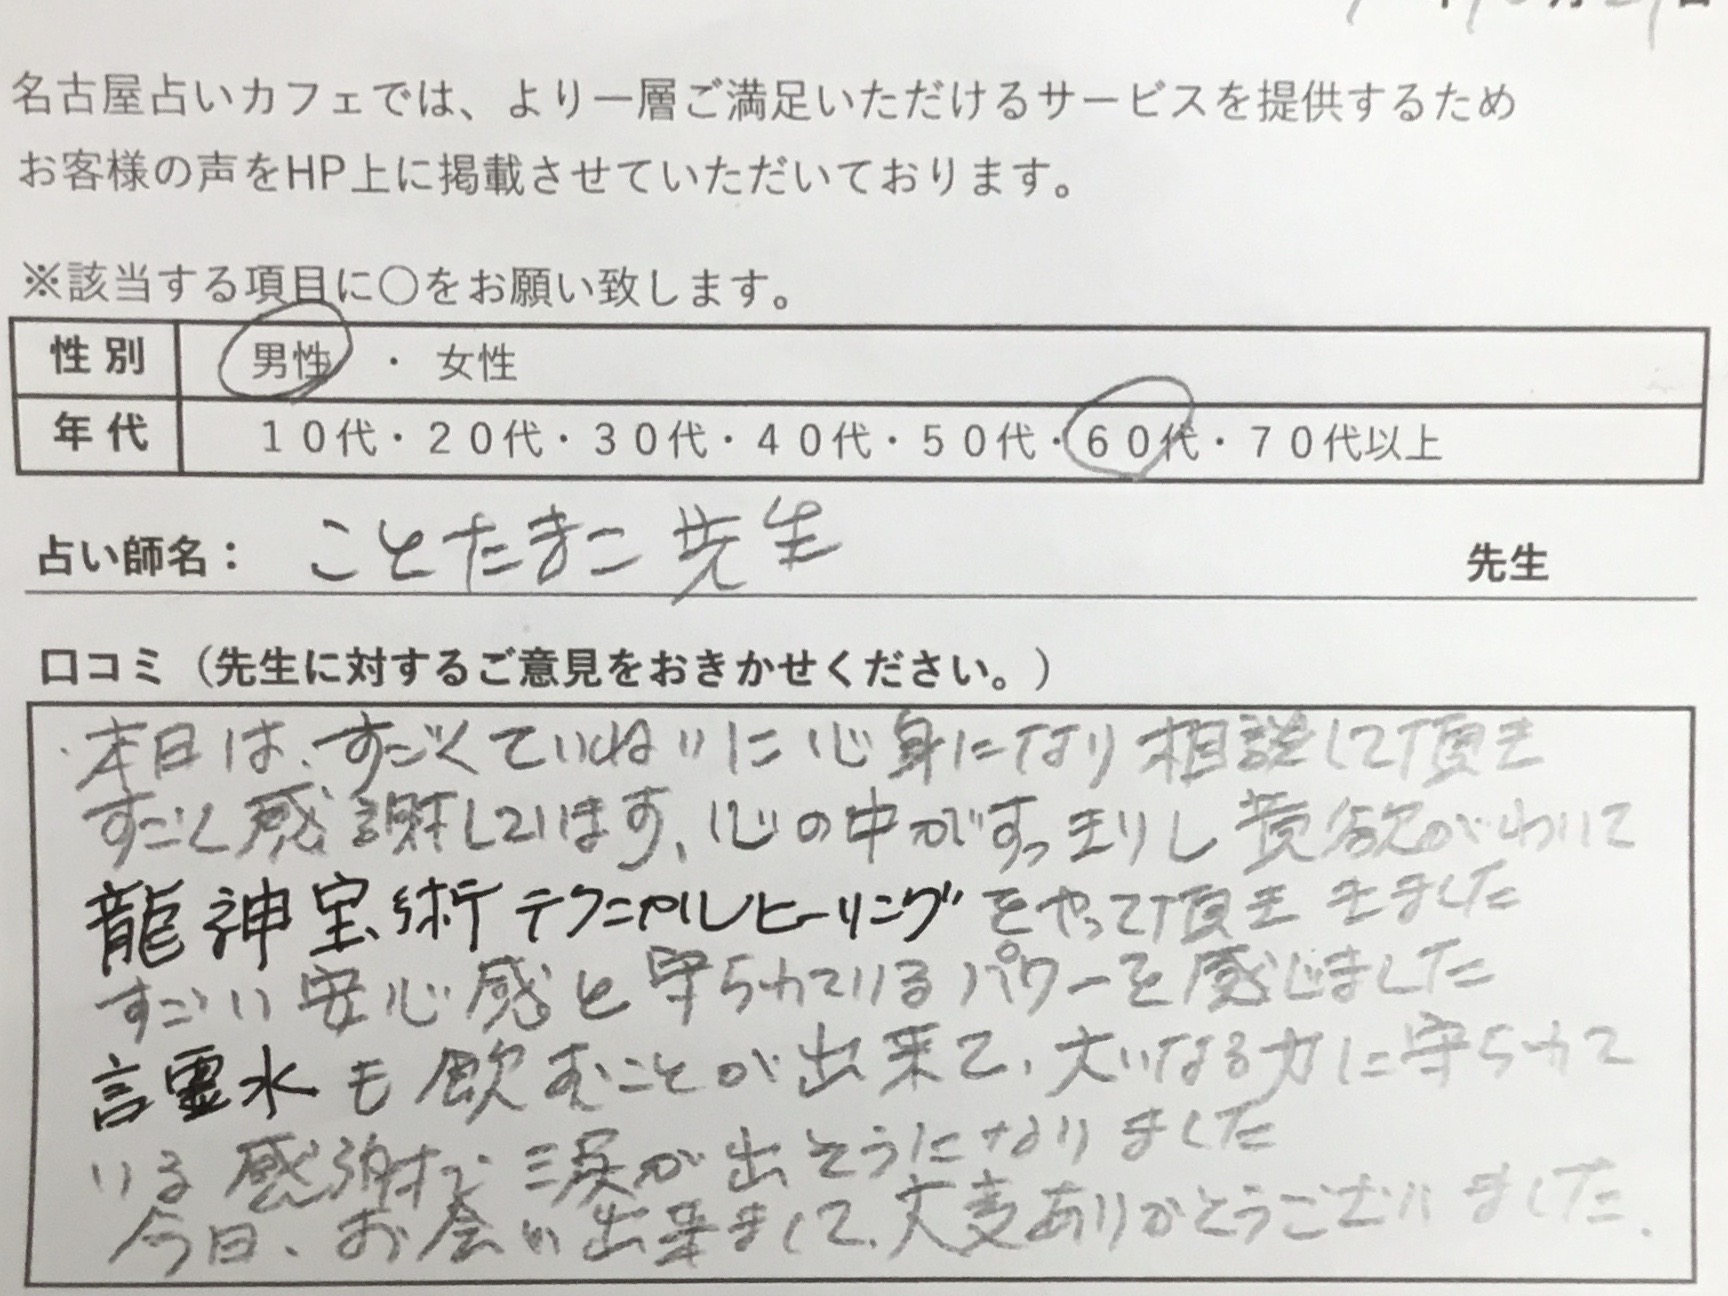 名古屋占いカフェでは、より一層ご満足いただけるサービスを提供するため
お客様の声をHP上に掲載させていただいております。
※該当する項目に○をお願い致します。
性別 男性 ・ 女性
年代 10代・20代・30代・40代・50代・60代・70代以上
占い師名： ことたまこ先生 先生
口コミ（先生に対するご意見をおきかせください。）
本日は、すごくていねいに心身になり相談して頂き
すごく感謝しています、心の中がすっきりし 欲がわいて
龍神宝術テクニカルヒーリングをやって頂き きました
すごい安心感と守られているパワーを感じました
言霊水も飲むことが出来て、大いなる力に守られて
いる感謝で涙が出そうになりました
今日、お会い出来まして、大変ありがとうございました、